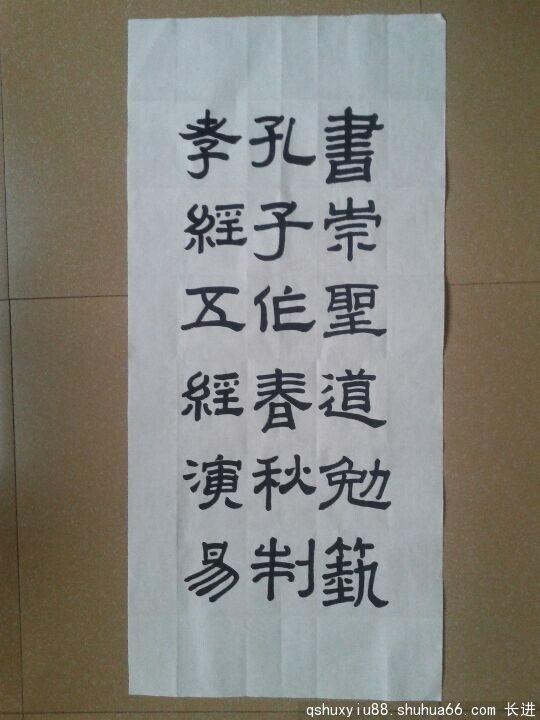 書崇聖道勉藝
孔子作春秋制
孝經五經演易
qshuxyiu88.shuhua66.com 长进